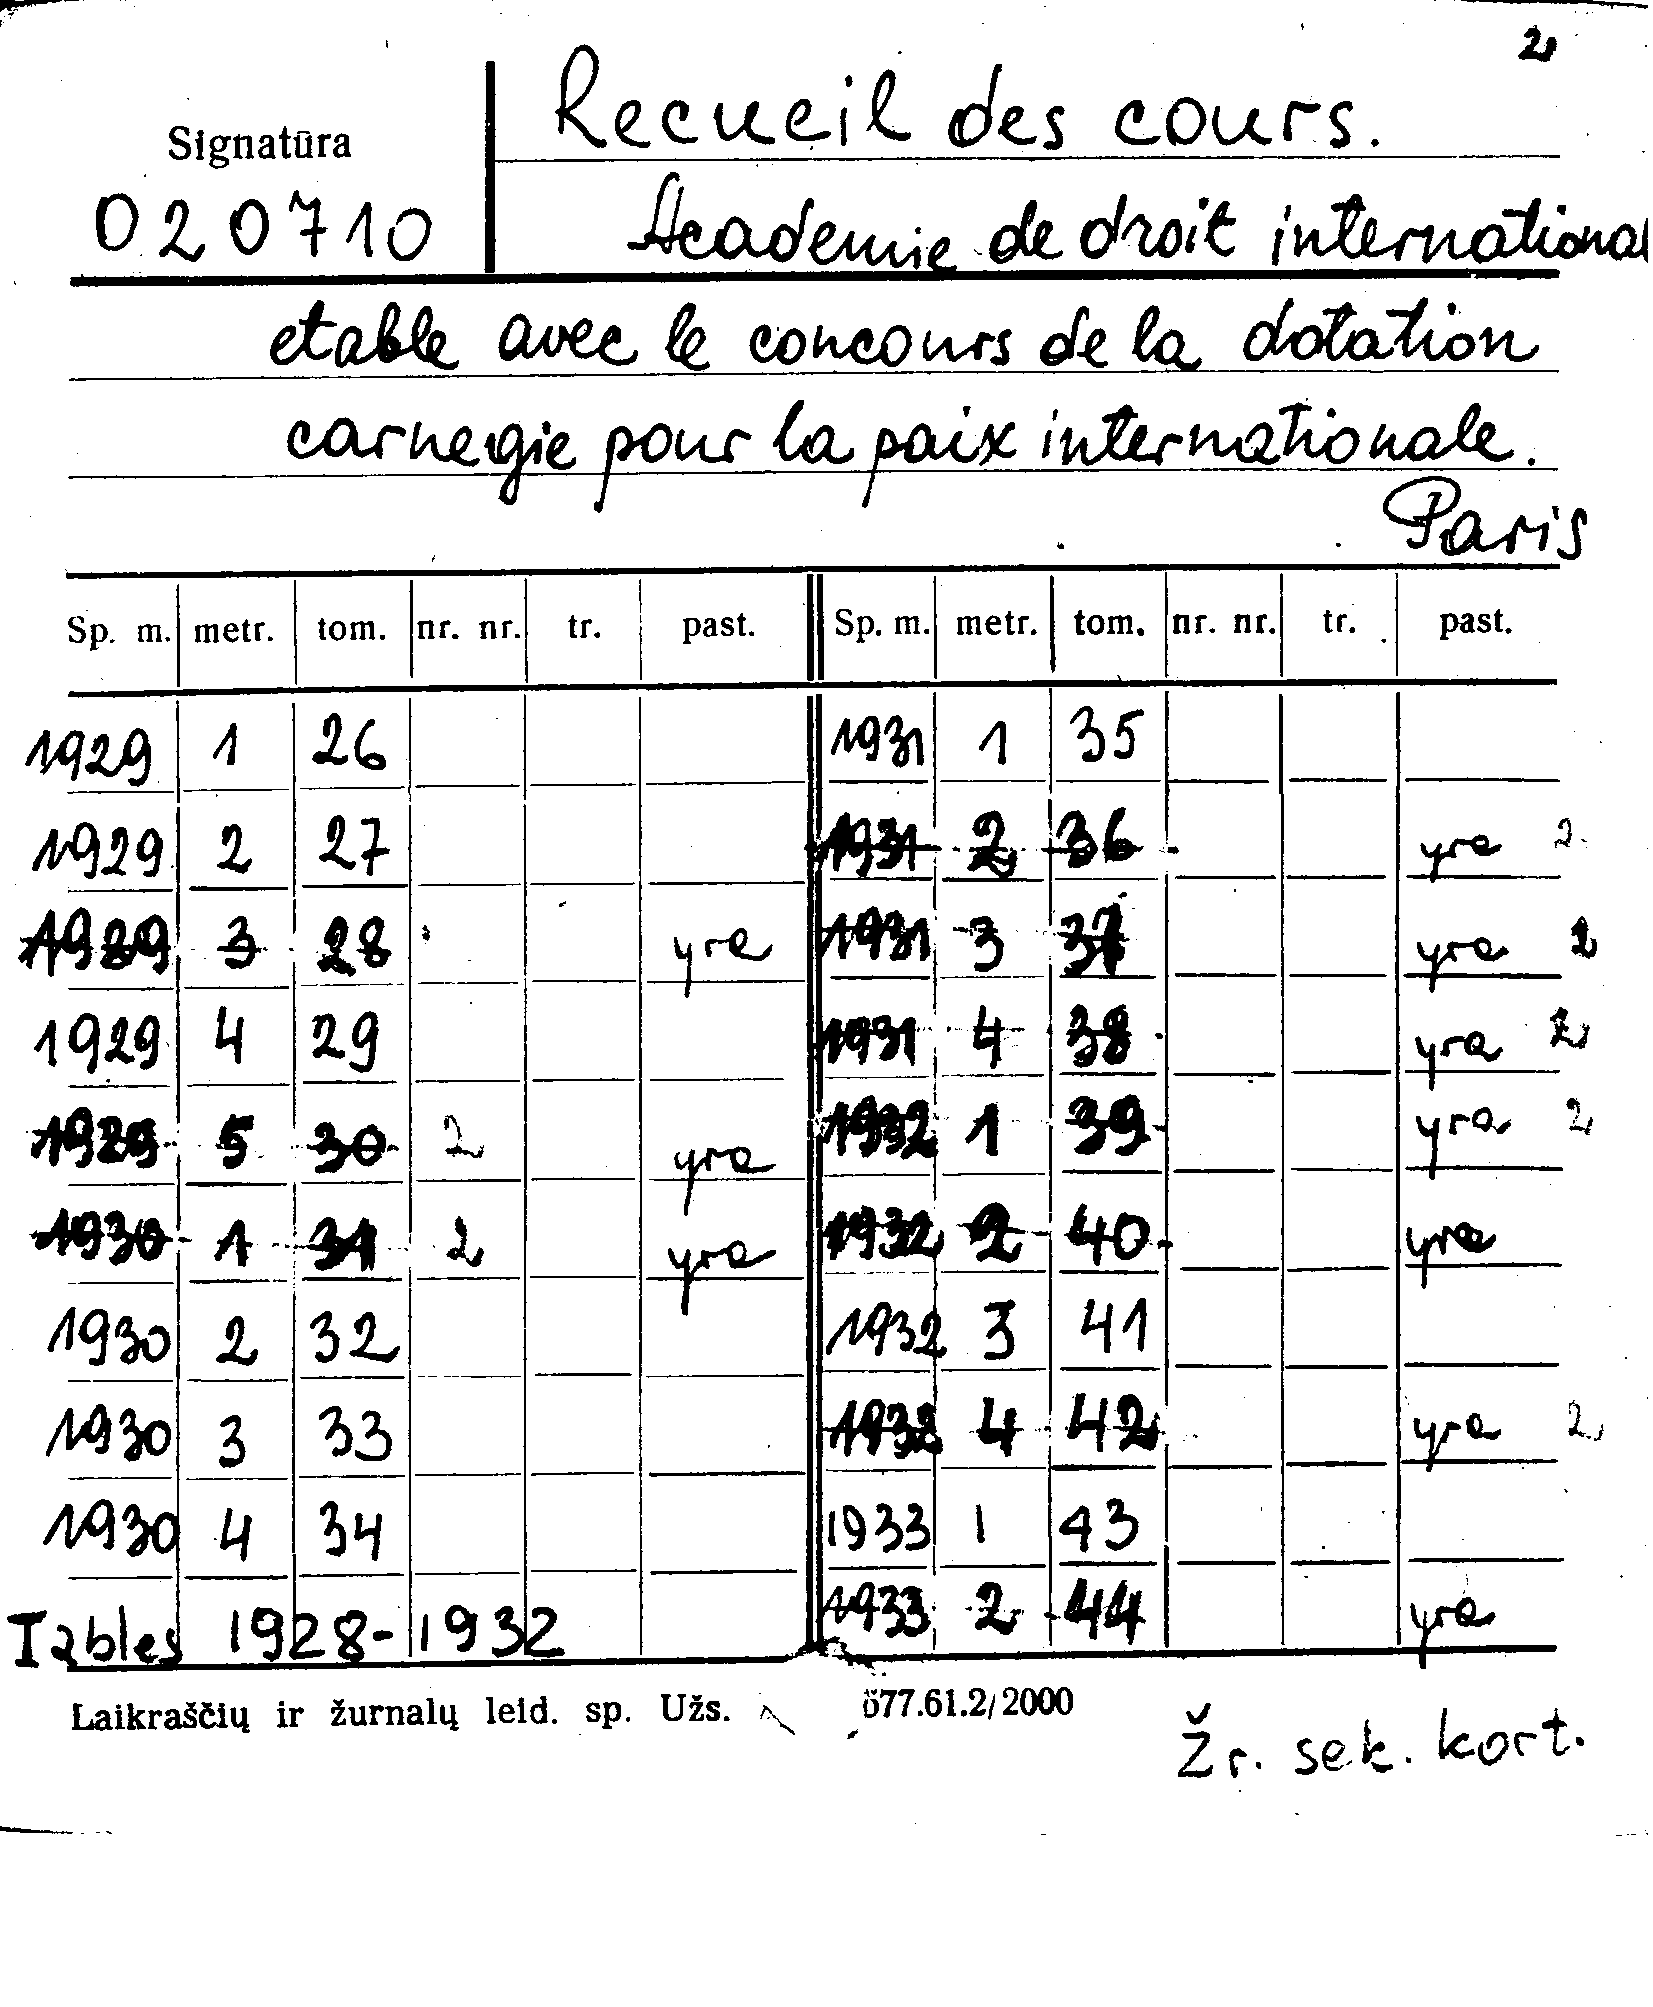 2
Recueil des cours.
Signatūra
020710
Academie de droit international
etable avec le concours de la dotation
carnegie pour la paix internationale.
Paris
Sp. m. metr. tom. nr. nr. tr. past. Sp. m. metr. tom. nr. nr. tr. past.
1929 1 26 1931 1 35
1929 2 27 1931 2 36 yra 2
1929 3 28 yra 1931 3 37 yra 2
1929 4 29 1931 4 38 yra 2
1929 5 30 2 yra 1932 1 39 yra 2
1930 1 31 2 yra 1932 2 40 yra
1930 2 32 1932 3 41
1930 3 33 1932 4 42 yra 2
1930 4 34 1933 1 43
Tables 1928-1932 1933 2 44 yra
Laikraščių ir žurnalų leid. sp. Užs. 577.61.2/2000
Žr. sek. kort.